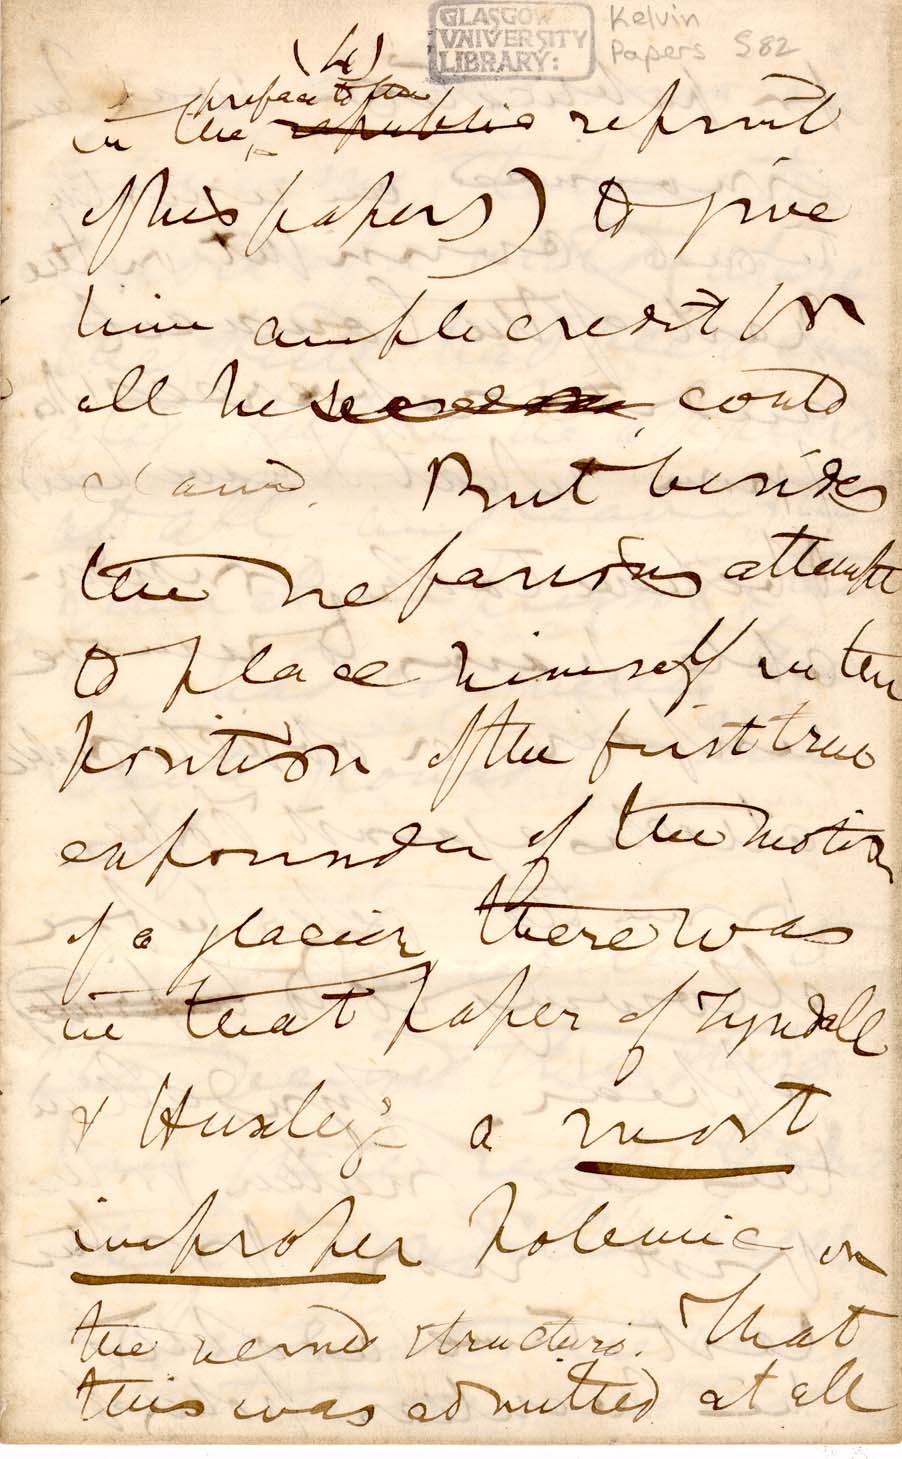 GLASGOW
UNIVERSITY
LIBRARY:
Kelvin
Papers S82
(4)
preface to the
in the republic reprint
of his papers) to give
him ample credit for
all he could
claim. But besides
the nefarious attempt
to place himself in the
position of the first true
expounder of the motion
of a glacier, there was
in that paper of Tyndall
& Huxley's a most
improper polemic on
the veined structure. That
this was admitted at all